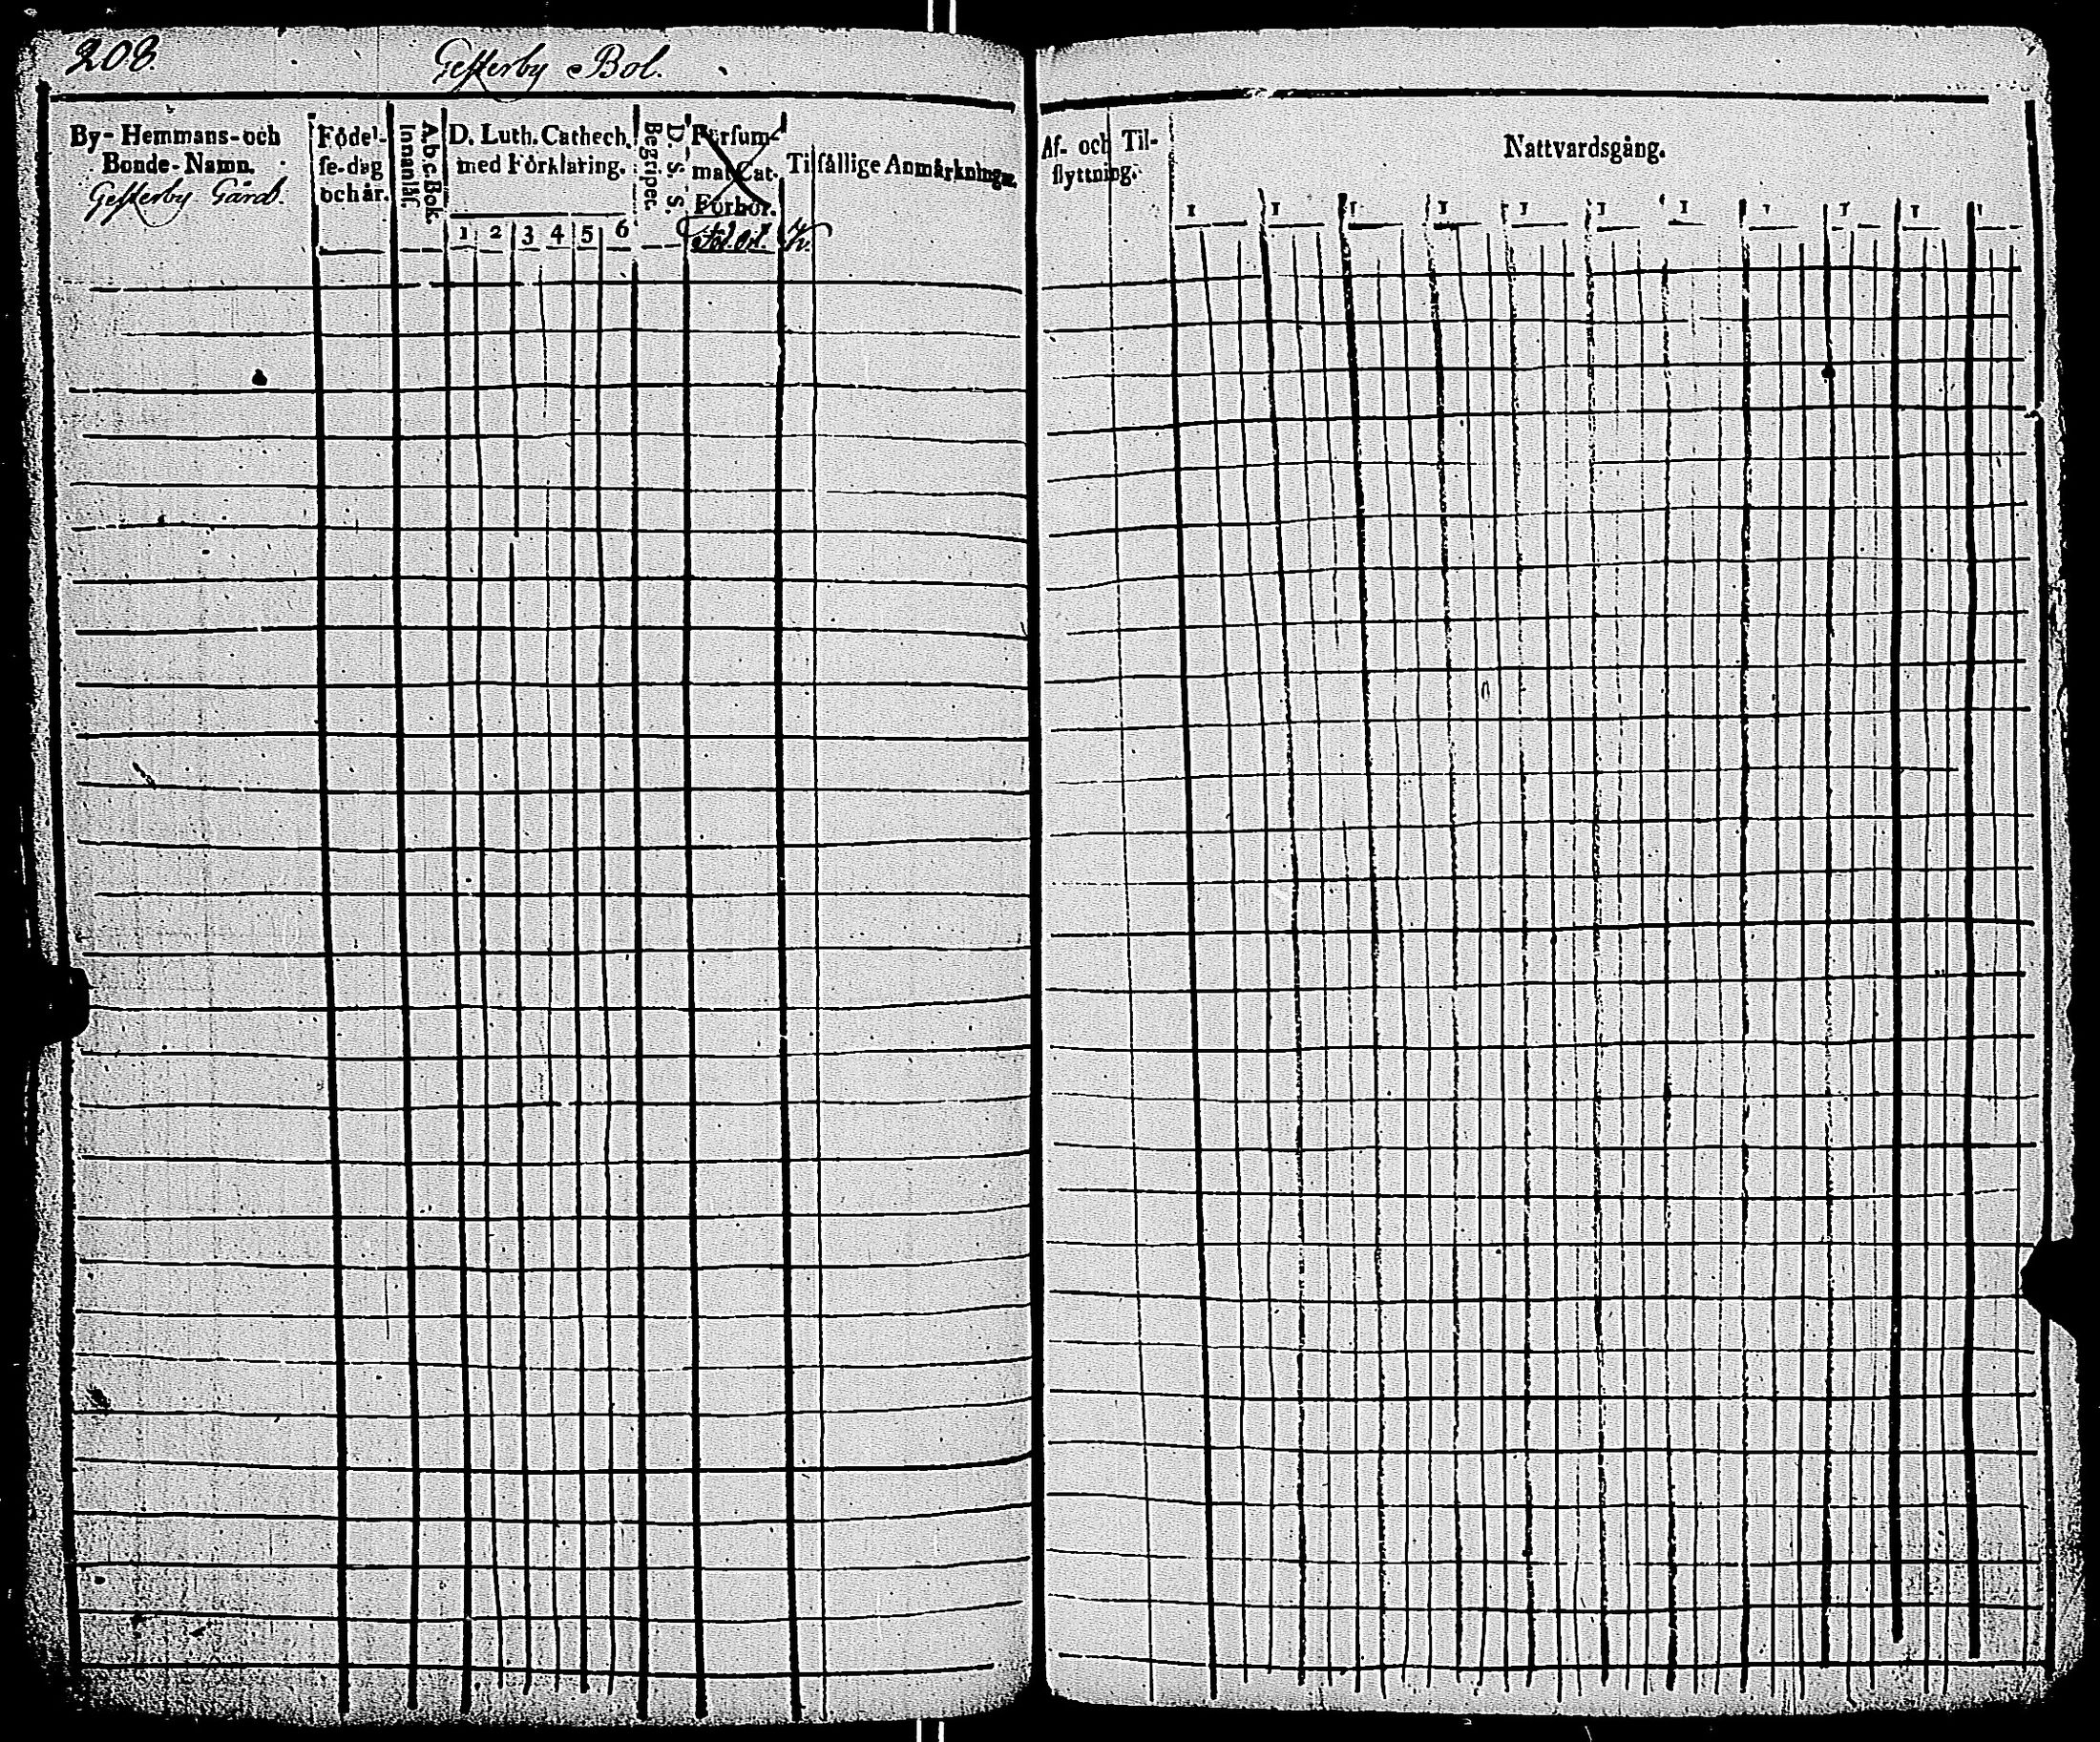 208.
Gesterby Bol.
By- Hemmans- och
Bonde-Namn.
Gesterby Gård.
Födel-
se-dag
och år.
A.b.c.Bok.
Innanläs.
D. Luth. Cathech.
med Förklaring.
1 2 3 4 5 6
D. S. S.
Begriper.
Försum-
mat Cat.
Förhör.
Tilfällige Anmärkningar.
Af- och Til-
flyttning.
Nattvardsgång.
1 1 1 1 1 1 1 1 1 1 1